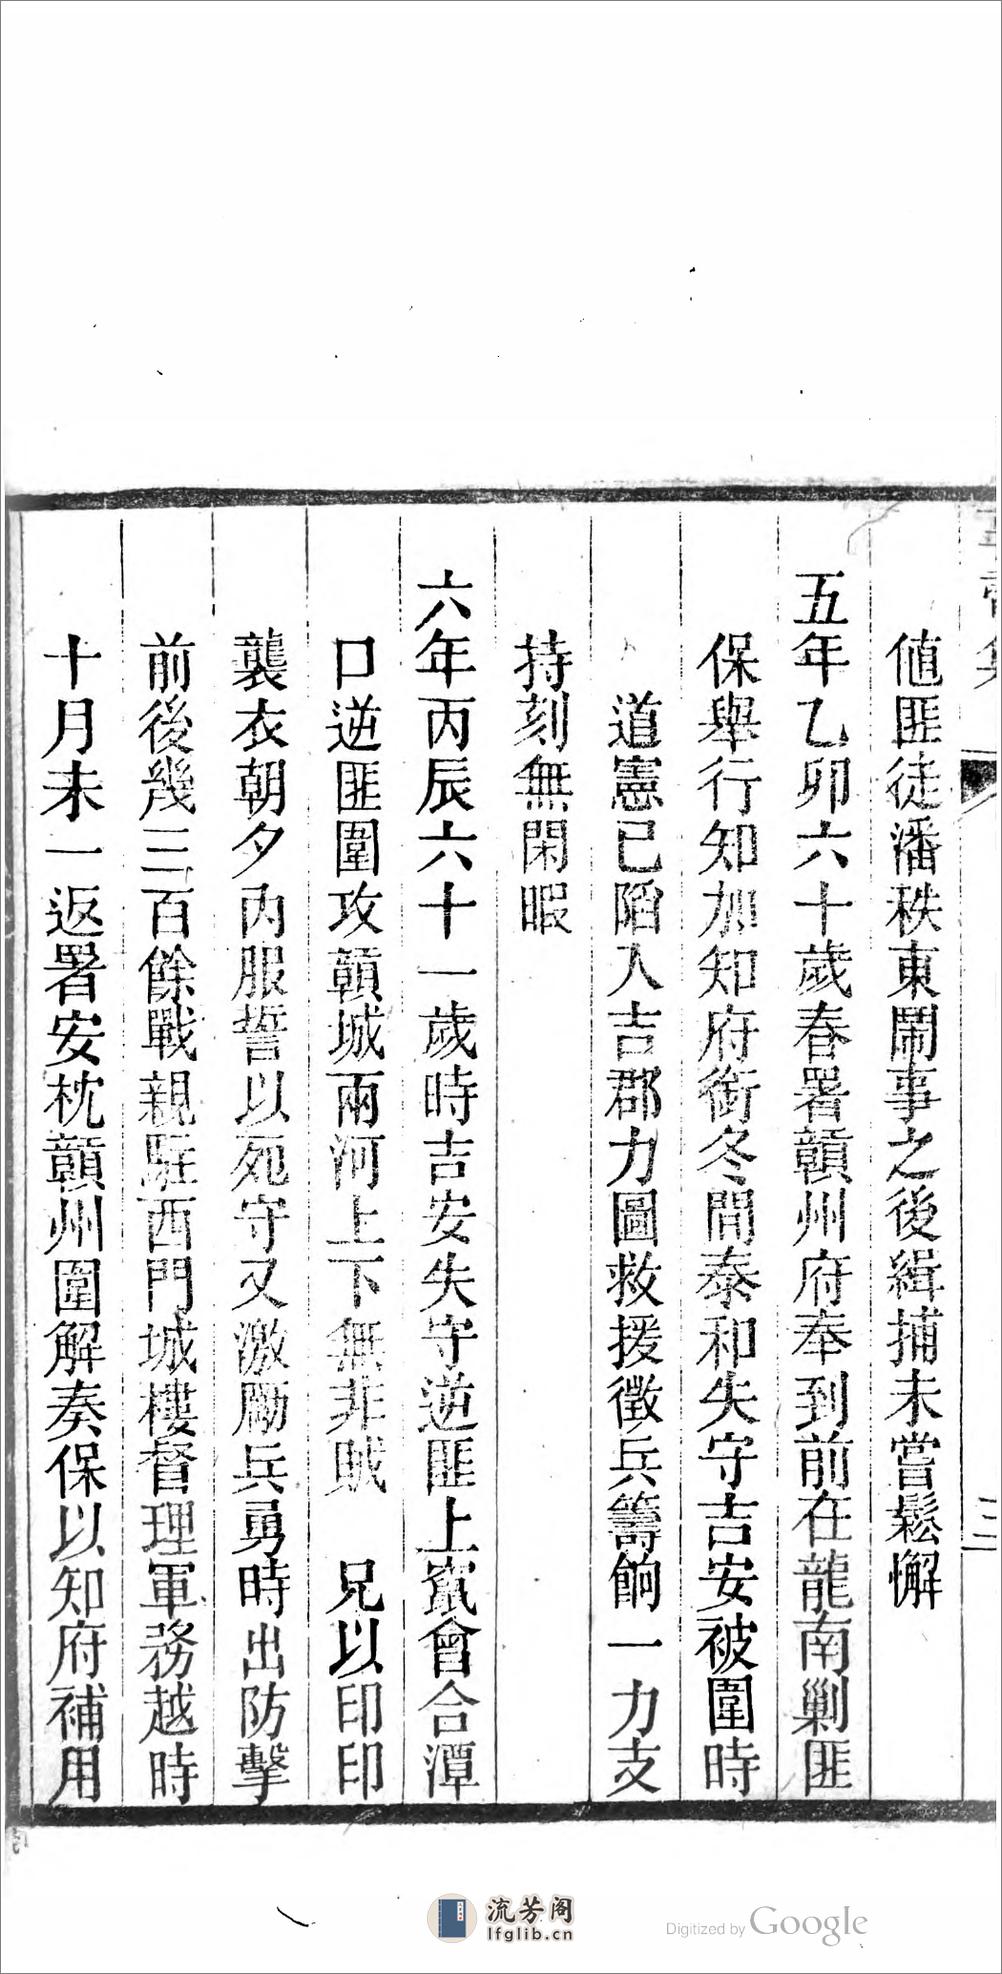 値匪徒潘秩東鬧事之後緝捕未嘗鬆懈
五年乙卯六十歲春署贛州府奉到前在龍南剿匪
保舉行知加知府銜冬間泰和失守吉安被圍時
道憲已陷入吉郡力圖救援徵兵籌餉一力支
持刻無閑暇
六年丙辰六十一歲時吉安失守逆匪上竄會合潭
口逆匪圍攻贛城兩河上下無非賊　兄以印印
襲衣朝夕內服誓以死守又激勵兵勇時出防擊
前後幾三百餘戰親駐西門城樓督理軍務越時
十月未一返署安枕贛州圍解奏保以知府補用
流芳阁
lfglib.cn
Digitized by Google